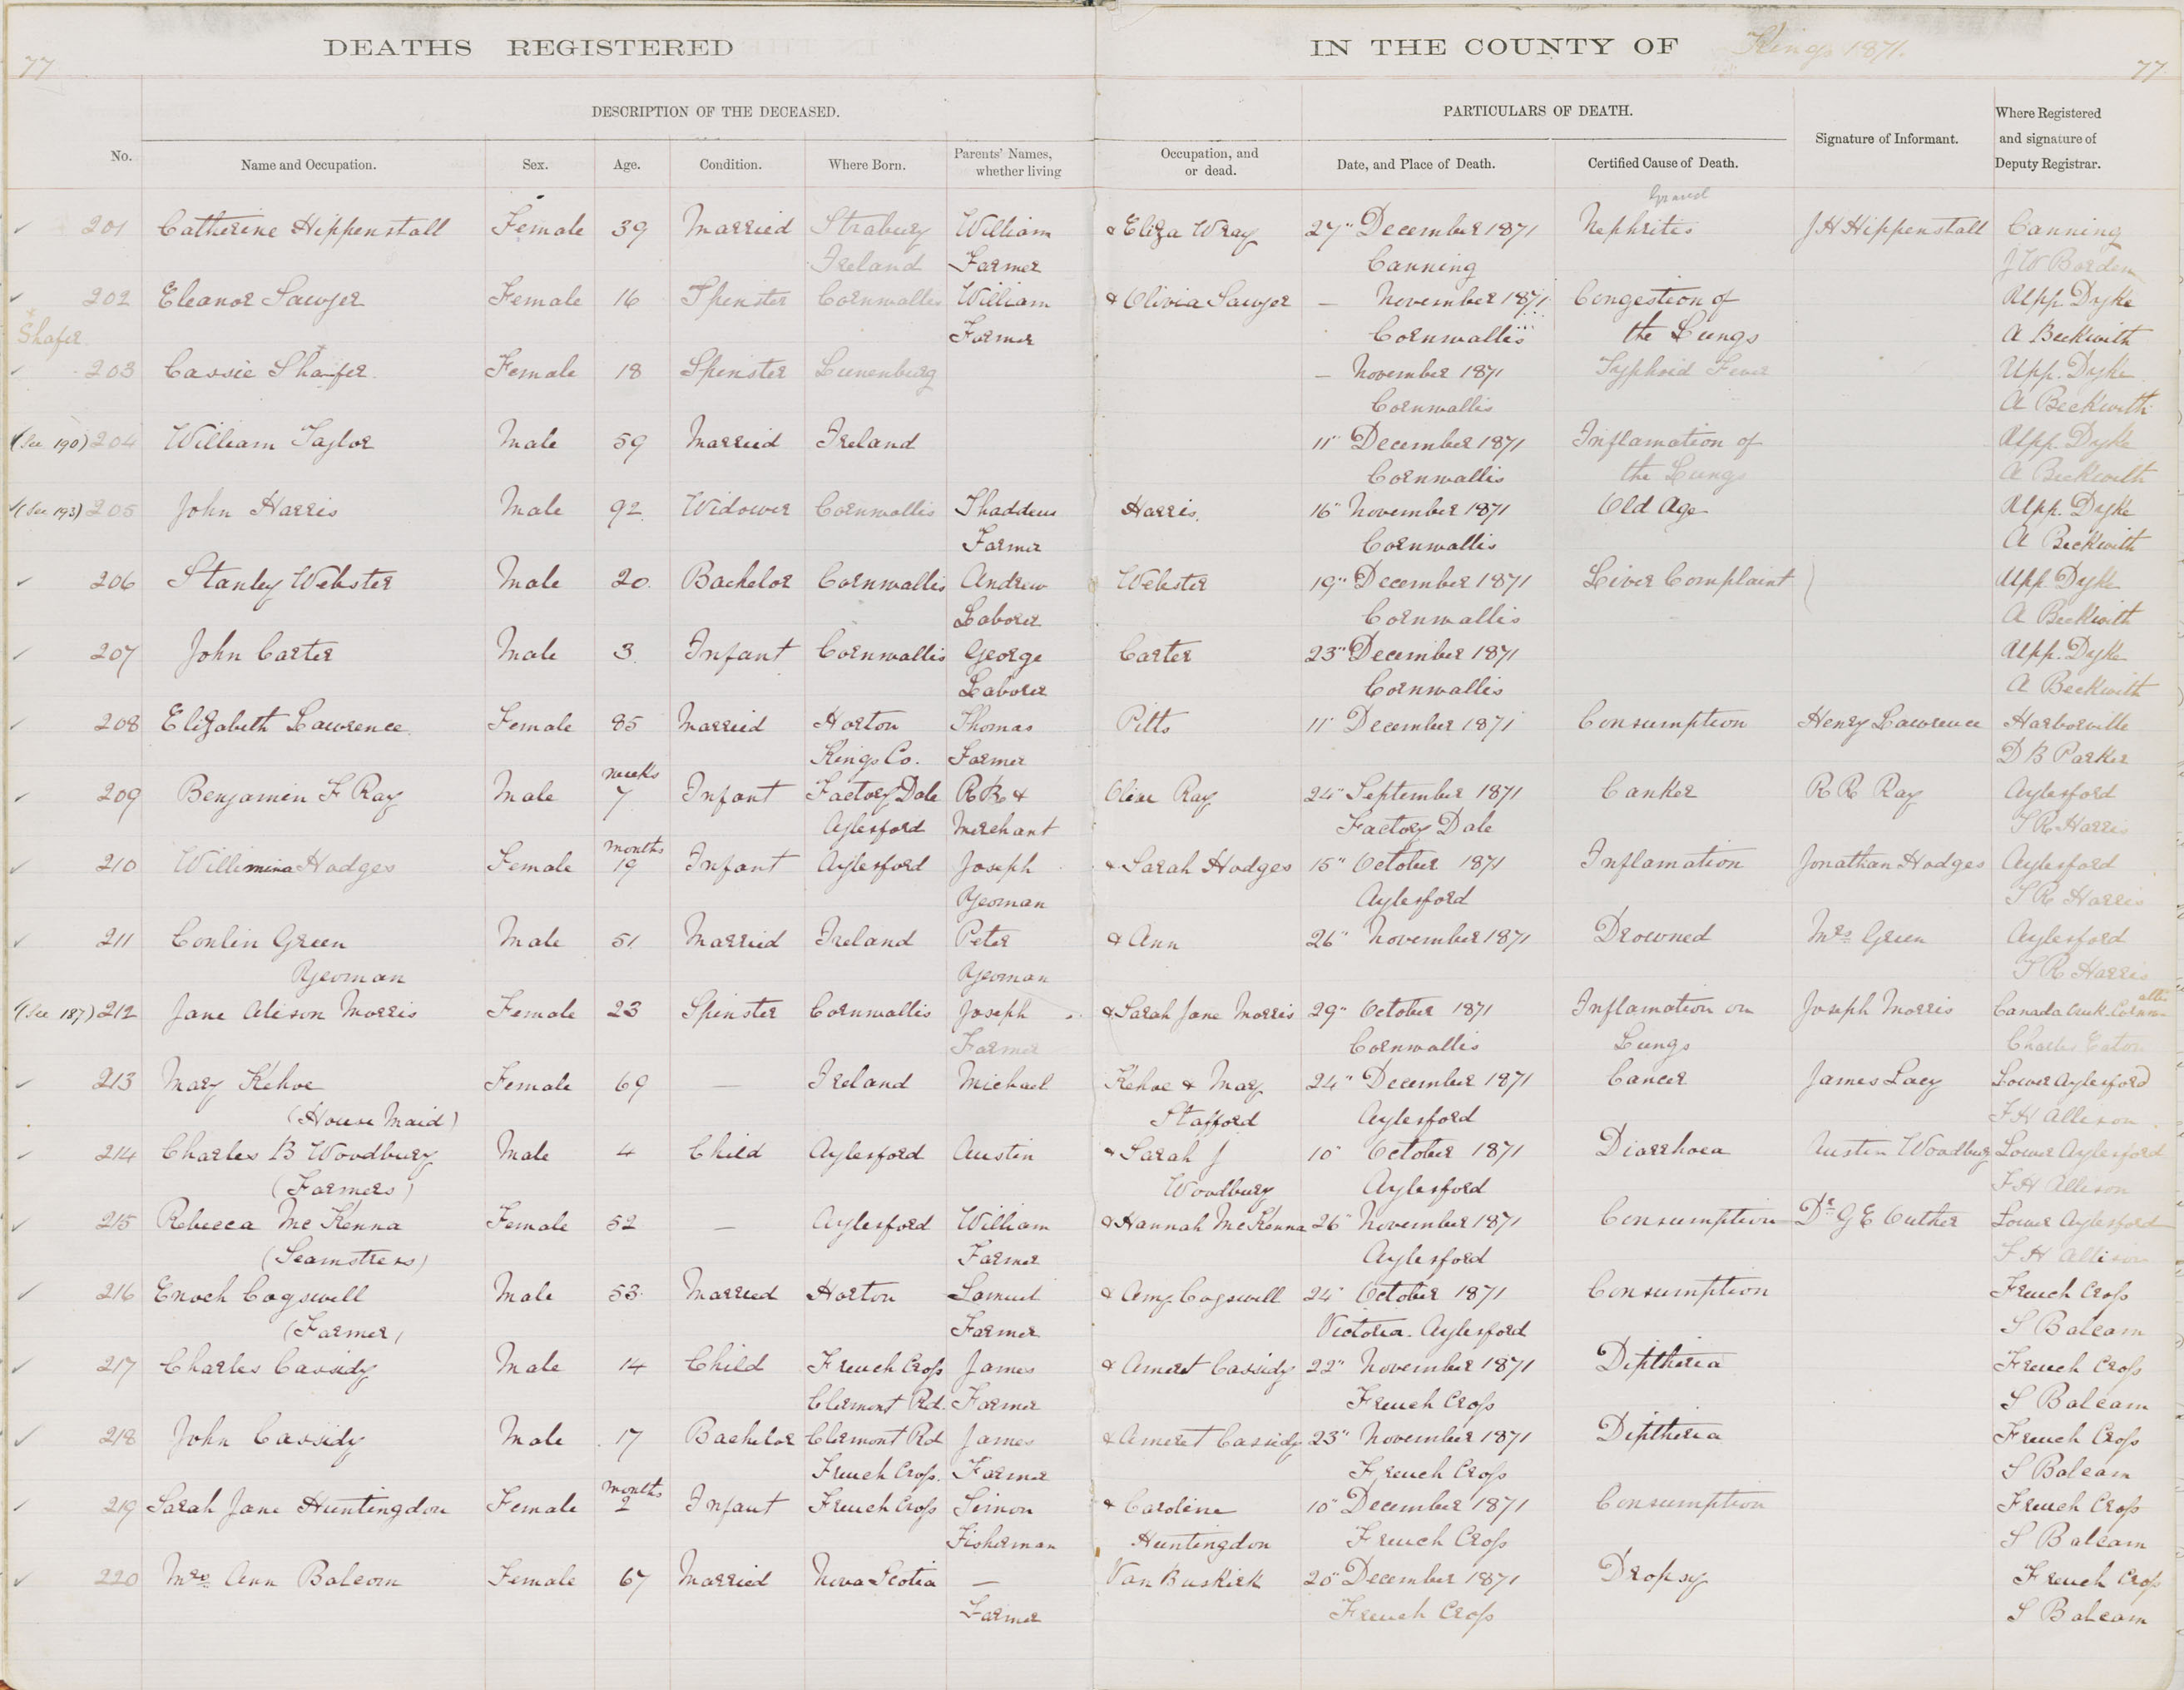 DEATHS REGISTERED IN THE COUNTY OF Kings 1871.
77 77
DESCRIPTION OF THE DECEASED. PARTICULARS OF DEATH.
No. Name and Occupation. Sex. Age. Condition. Where Born. Parents' Names, whether living Occupation, and or dead. Date, and Place of Death. Certified Cause of Death. Signature of Informant. Where Registered and signature of Deputy Registrar.
Gravel
✓ 201 Catherine Hippenstall Female 39 Married Strabury William & Eliza Wray 27" December 1871 Nephritis J H Hippenstall Canning
Ireland Farmer Canning J W Borden
✓ 202 Eleanor Sawyer Female 16 Spinster Cornwallis William & Olivia Sawyer — November 1871 Congestion of Upp. Dyke
Shafer Farmer Cornwallis the Lungs A Beckwith
✓ 203 Cassie Shaifer Female 18 Spinster Lunenburg — November 1871 Typhoid Fever Upp. Dyke
Cornwallis A Beckwith
✓(See 190) 204 William Taylor Male 59 Married Ireland 11" December 1871 Inflamation of Upp. Dyke
Cornwallis the Lungs A Beckwith
✓(See 193) 205 John Harris Male 92 Widower Cornwallis Thaddeus Harris. 16" November 1871 Old Age Upp. Dyke
Farmer Cornwallis A Beckwith
✓ 206 Stanley Webster Male 20 Bachelor Cornwallis Andrew Webster 19" December 1871 Liver Complaint Upp. Dyke
Laborer Cornwallis A Beckwith
✓ 207 John Carter Male 3 Infant Cornwallis George Carter 23" December 1871 Upp. Dyke
Laborer Cornwallis A Beckwith
✓ 208 Elizabeth Lawrence Female 85 Married Horton Thomas Pitts 11" December 1871 Consumption Henry Lawrence Harborville
Kings Co. Farmer D B Parker
weeks
✓ 209 Benjamin F Ray Male 7 Infant Factory Dale R R & Olive Ray 24" September 1871 Canker R R Ray Aylesford
Aylesford Merchant Factory Dale T R Harris
months
✓ 210 Willimina Hodges Female 19 Infant Aylesford Joseph & Sarah Hodges 15" October 1871 Inflamation Jonathan Hodges Aylesford
Yeoman Aylesford T R Harris
✓ 211 Conlin Green Male 51 Married Ireland Peter & Ann 26" November 1871 Drowned Mrs Green Aylesford
Yeoman Yeoman T R Harris
✓(See 187) 212 Jane Alison Morris Female 23 Spinster Cornwallis Joseph & Sarah Jane Morris 29" October 1871 Inflamation on Joseph Morris Canada Creek. Cornwallis
Farmer Cornwallis Lungs Charles Eaton
✓ 213 Mary Kehoe Female 69 — Ireland Michael Kehoe & Mary 24" December 1871 Cancer James Lacy Lower Aylesford
(House Maid) Stafford Aylesford F H Allison
✓ 214 Charles B Woodbury Male 4 Child Aylesford Austin & Sarah J 10" October 1871 Diarrhoea Austin Woodbury Lower Aylesford
(Farmers) Woodbury Aylesford F H Allison
✓ 215 Rebecca McKenna Female 52 — Aylesford William & Hannah McKenna 26" November 1871 Consumption Dr G E Outher Lower Aylesford
(Seamstress) Farmer Aylesford F H Allison
✓ 216 Enoch Cogswell Male 53 Married Horton Samuel & Amy Cogswell 24" October 1871 Consumption French Cross
(Farmer) Farmer Victoria. Aylesford S Balcam
✓ 217 Charles Cassidy Male 14 Child French Cross James & Ameret Cassidy 22" November 1871 Diptheria French Cross
Clermont Rd. Farmer French Cross S Balcam
✓ 218 John Cassidy Male 17 Bachelor Clermont Rd James & Ameret Cassidy 23" November 1871 Diptheria French Cross
French Cross. Farmer French Cross S Balcam
months
✓ 219 Sarah Jane Huntingdon Female 2 Infant French Cross Simon & Caroline 10" December 1871 Consumption French Cross
Fisherman Huntingdon French Cross S Balcam
✓ 220 Mrs Ann Balcom Female 67 Married Nova Scotia — Van Buskirk 20" December 1871 Dropsy French Cross
Farmer French Cross S Balcam